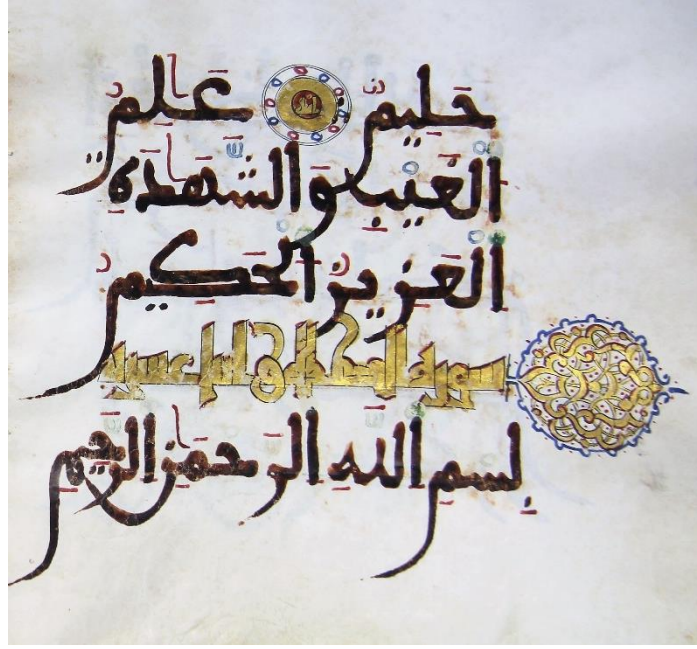 حَلِيمٌ عَلِمُ
الْغَيْبِ وَالشَّهَدَةِ
الْعَزِيزُ الْحَكِيمُ
سورة الطلاق عشرة
بِسْمِ اللَّهِ الرَّحْمَنِ الرَّحِيمِ